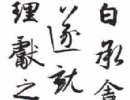 白承舍
遂就
理獻之